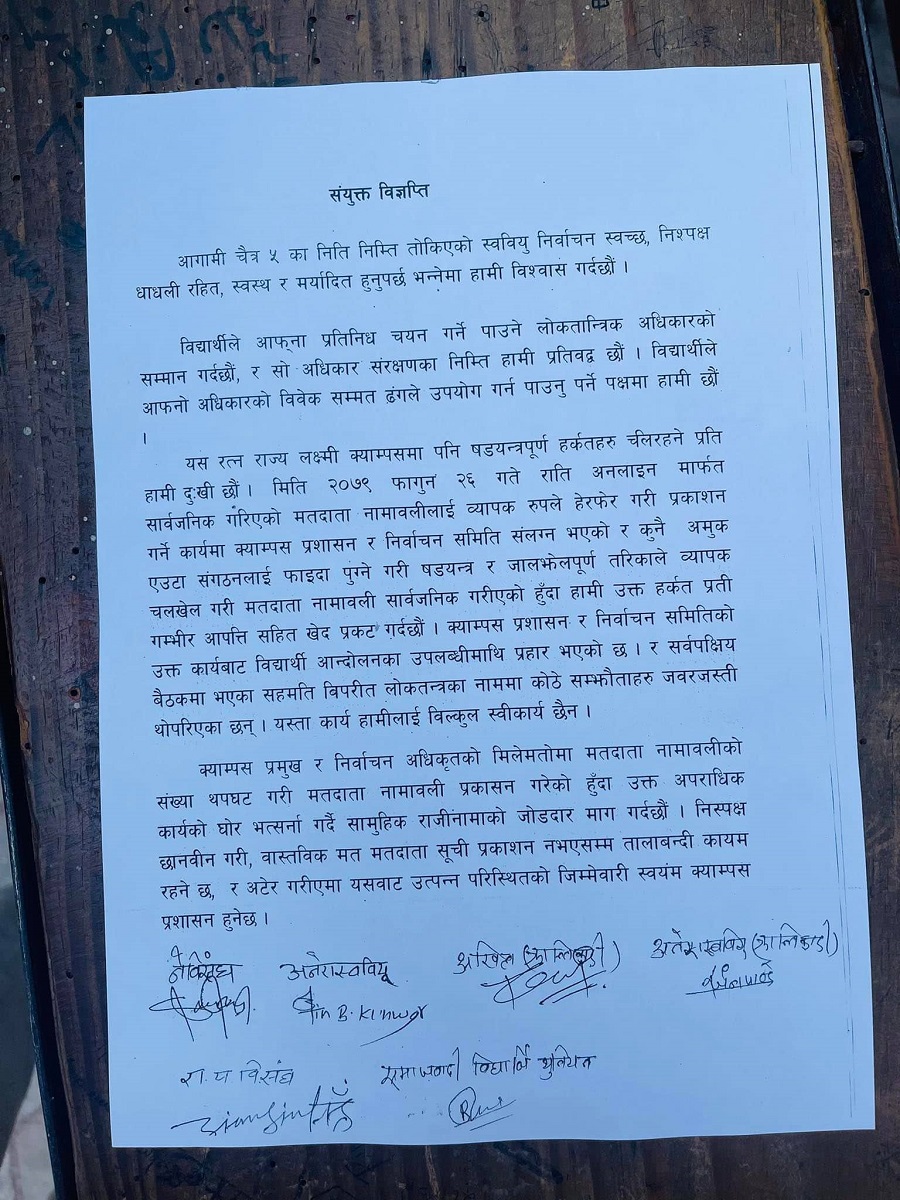 संयुक्त विज्ञप्ति
आगामी चैत्र ५ का निति निम्ति तोकिएको स्ववियु निर्वाचन स्वच्छ, निश्पक्ष
धाधली रहित, स्वस्थ र मर्यादित हुनुपर्छ भन्नेमा हामी विश्वास गर्दछौं ।
विद्यार्थीले आफ्ना प्रतिनिध चयन गर्ने पाउने लोकतान्त्रिक अधिकारको
सम्मान गर्दछौं, र सो अधिकार संरक्षणका निम्ति हामी प्रतिवद्व छौं । विद्यार्थीले
आफनो अधिकारको विवेक सम्मत ढंगले उपयोग गर्न पाउनु पर्ने पक्षमा हामी छौं
।
यस रत्न राज्य लक्ष्मी क्याम्पसमा पनि षडयन्त्रपूर्ण हर्कतहरु चलिरहने प्रति
हामी दुःखी छौं । मिति २०७९ फागुन २६ गते राति अनलाइन मार्फत
सार्वजनिक गरिएको मतदाता नामावलीलाई व्यापक रुपले हेरफेर गरी प्रकाशन
गर्ने कार्यमा क्याम्पस प्रशासन र निर्वाचन समिति संलग्न भएको र कुनै अमुक
एउटा संगठनलाई फाइदा पुग्ने गरी षडयन्त्र र जालझेलपूर्ण तरिकाले व्यापक
चलखेल गरी मतदाता नामावली सार्वजनिक गरीएको हुँदा हामी उक्त हर्कत प्रती
गम्भीर आपत्ति सहित खेद प्रकट गर्दछौं । क्याम्पस प्रशासन र निर्वाचन समितिको
उक्त कार्यबाट विद्यार्थी आन्दोलनका उपलब्धीमाथि प्रहार भएको छ । र सर्वपक्षिय
बैठकमा भएका सहमति विपरीत लोकतन्त्रका नाममा कोठे सम्झौताहरु जवरजस्ती
थोपरिएका छन् । यस्ता कार्य हामीलाई विल्कुल स्वीकार्य छैन ।
क्याम्पस प्रमुख र निर्वाचन अधिकृतको मिलेमतोमा मतदाता नामावलीको
संख्या थपघट गरी मतदाता नामावली प्रकासन गरेको हुँदा उक्त अपराधिक
कार्यको घोर भत्सर्ना गर्दै सामुहिक राजीनामाको जोडदार माग गर्दछौं । निस्पक्ष
छानवीन गरी, वास्तविक मत मतदाता सूची प्रकाशन नभएसम्म तालाबन्दी कायम
रहने छ, र अटेर गरीएमा यसवाट उत्पन्न परिस्थितको जिम्मेवारी स्वयंम क्याम्पस
प्रशासन हुनेछ ।
नेविसंघ अनेरास्ववियू अखिल (क्रान्तिकारी) अनेरास्ववियु (क्रान्तिकारी)
B. Kunwar
रा. प्र विसंघ समाजवादी विद्यार्थि युनियन